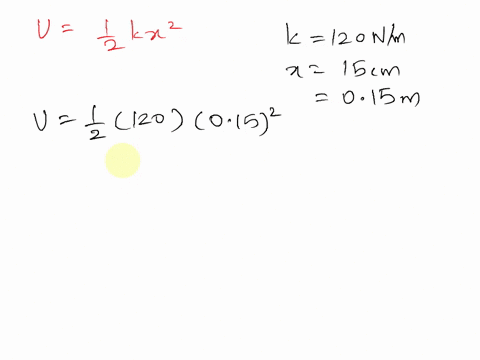 U = 1/2 kx²
k = 120 N/m
x = 15 cm
= 0.15 m
U = 1/2 (120) (0.15)²